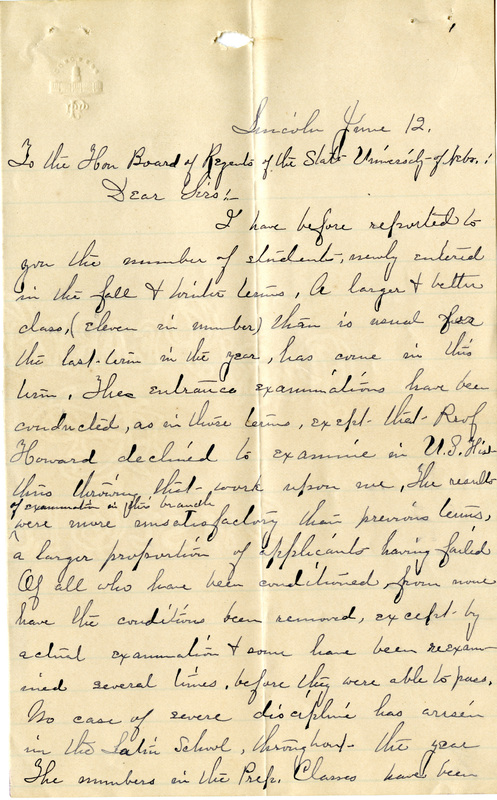 1
Lincoln June 12.
To the Hon Board of Regents of the State University of Nebr.:
Dear Sirs:-
I have before reported to
you the number of students, newly entered
in the fall & winter terms. A larger & better
class, (eleven in number) than is usual for
the last term in the year, has come in this
term. The entrance examinations have been
conducted, as in those terms, except that Prof
Howard declined to examine in U.S. Hist
thus throwing that work upon me. The results
of examination in this branch
were more unsatisfactory than previous terms,
a larger proportion of applicants having failed
Of all who have been conditioned, from none
have the conditions been removed, except by
actual examination & some have been reexam-
ined several times, before they were able to pass.
No case of severe discipline has arisen
in the Latin School, throughout the year
The numbers in the Prep. Classes have been